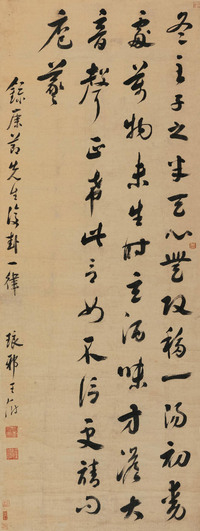 冬至子之半天心無改移一陽初
處萬物未生時玄酒味才淡大
音聲正希此言如不信更請問
庖羲
錄康節先生復卦一律
琅邪王澍